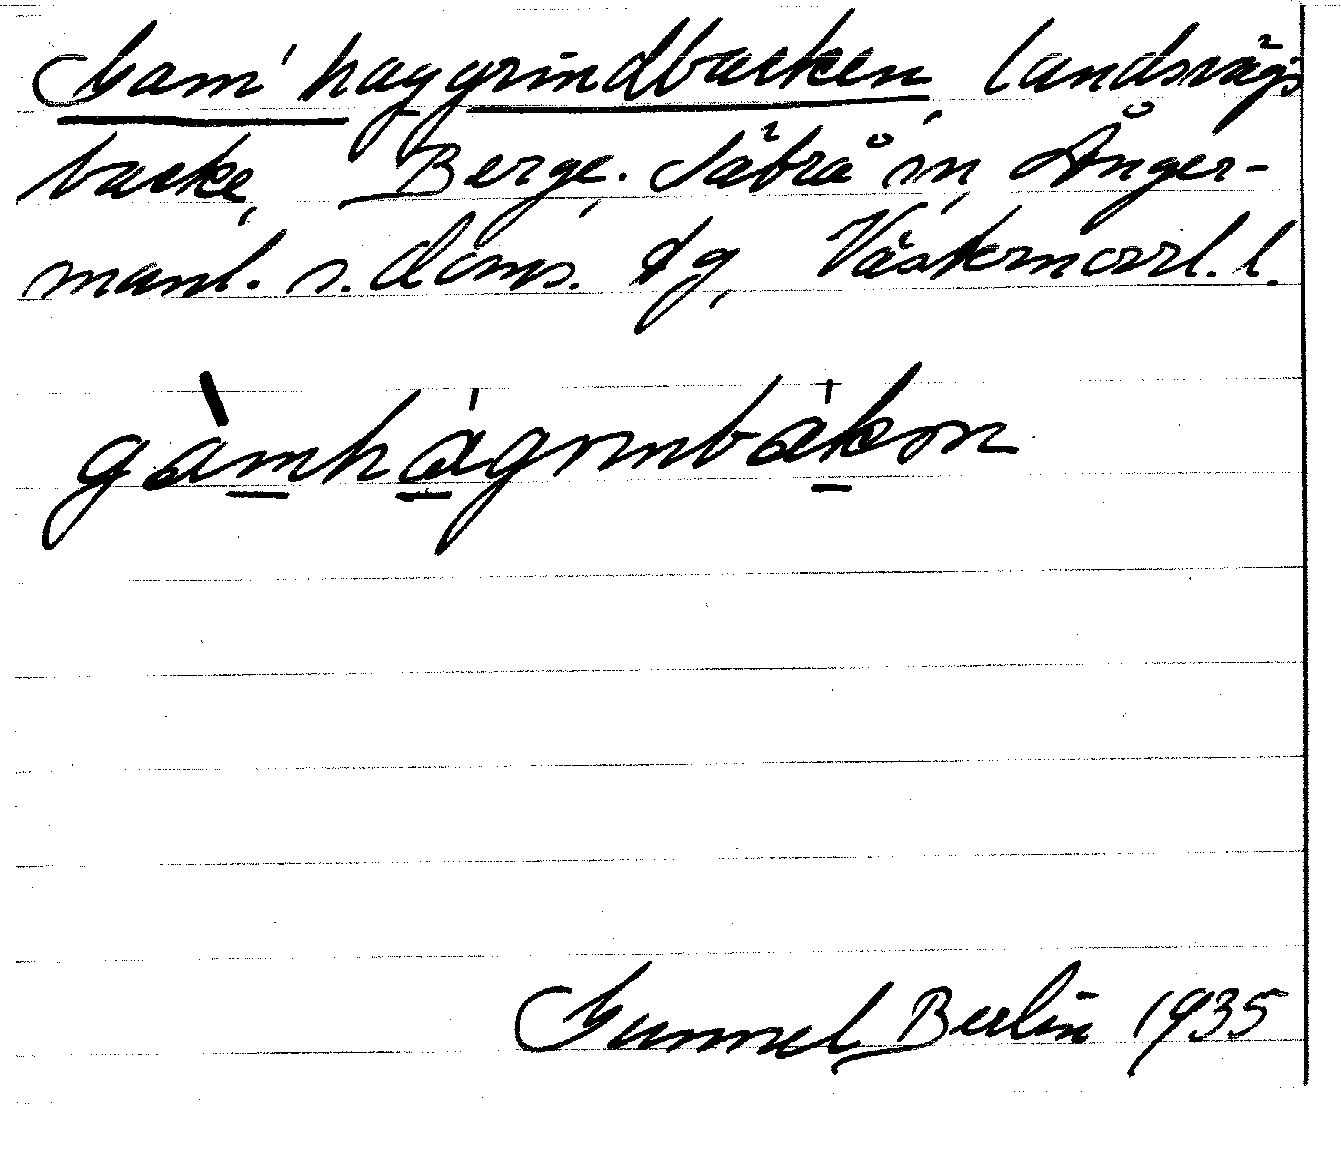 Gam'haggrindbacken, landsvägs
backe, Berge. Säbrå sn, Ånger-
manl. s. doms. tg, Västernorrl. l.
gàmhágrinbákən
Gunnel Berlin 1935